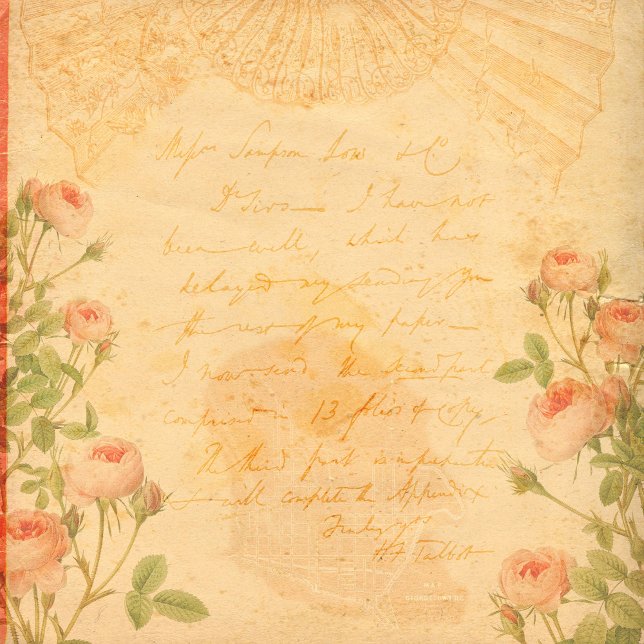 Messrs Sampson Low & Co
Dr Sirs — I have not
been well, which has
delayed my sending you
the rest of my paper —
I now send the second part
comprised in 13 folios of copy.
The third part is in preparation
I will complete the Appendix
H F Talbot
MAP
GEORGETOWN